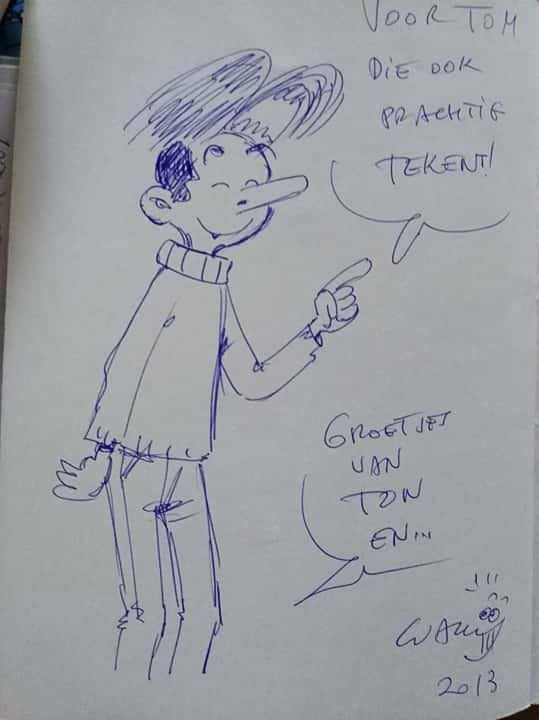 VOOR TOM
DIE OOK
PRACHTIG
TEKENT!
GROETJES
VAN
TON
EN...
WALLY
2013